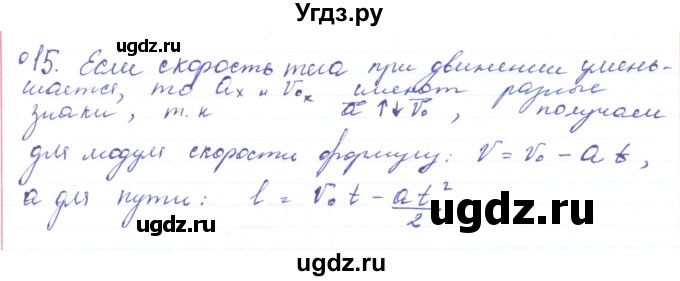 Угдз.ру
°15. Если скорость тела при движении умень-
шается, то aₓ и v₀ₓ имеют разные
знаки, т.к a⃗ ↑↓ v⃗₀, получаем
для модуля скорости формулу: v = v₀ - at,
а для пути: l = v₀t - at²/2
ugdz.ru
ugdz.ru
ugdz.ru
ugdz.ru
ugdz.ru
ugdz.ru